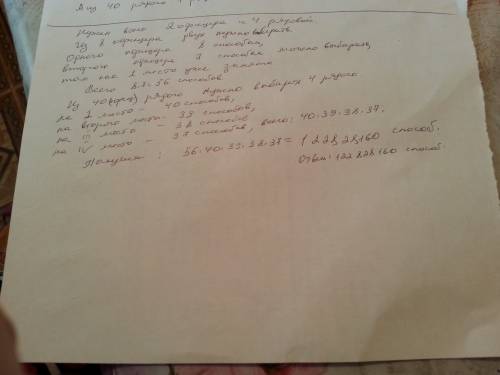 А из 40 рядов
Нужен всего 2 офицера и 4 рядовой.
Из 8 офицера двух нужно выбирать
Одного офицера 8 способов,
второго офицера 7 способов можно выбирать,
так как 1 место уже занято
Всего 8.7=56 способов
Из 40 рядого нужно выбирать 4 рядого
на 1 место - 40 способов,
на второго место - 39 способов,
на место - 38 способов
на IV место - 37 способов, всего: 40.39.38.37.
Получим : 56.40.39.38.37= 122828160 способ.
Ответ: 122828160 способ